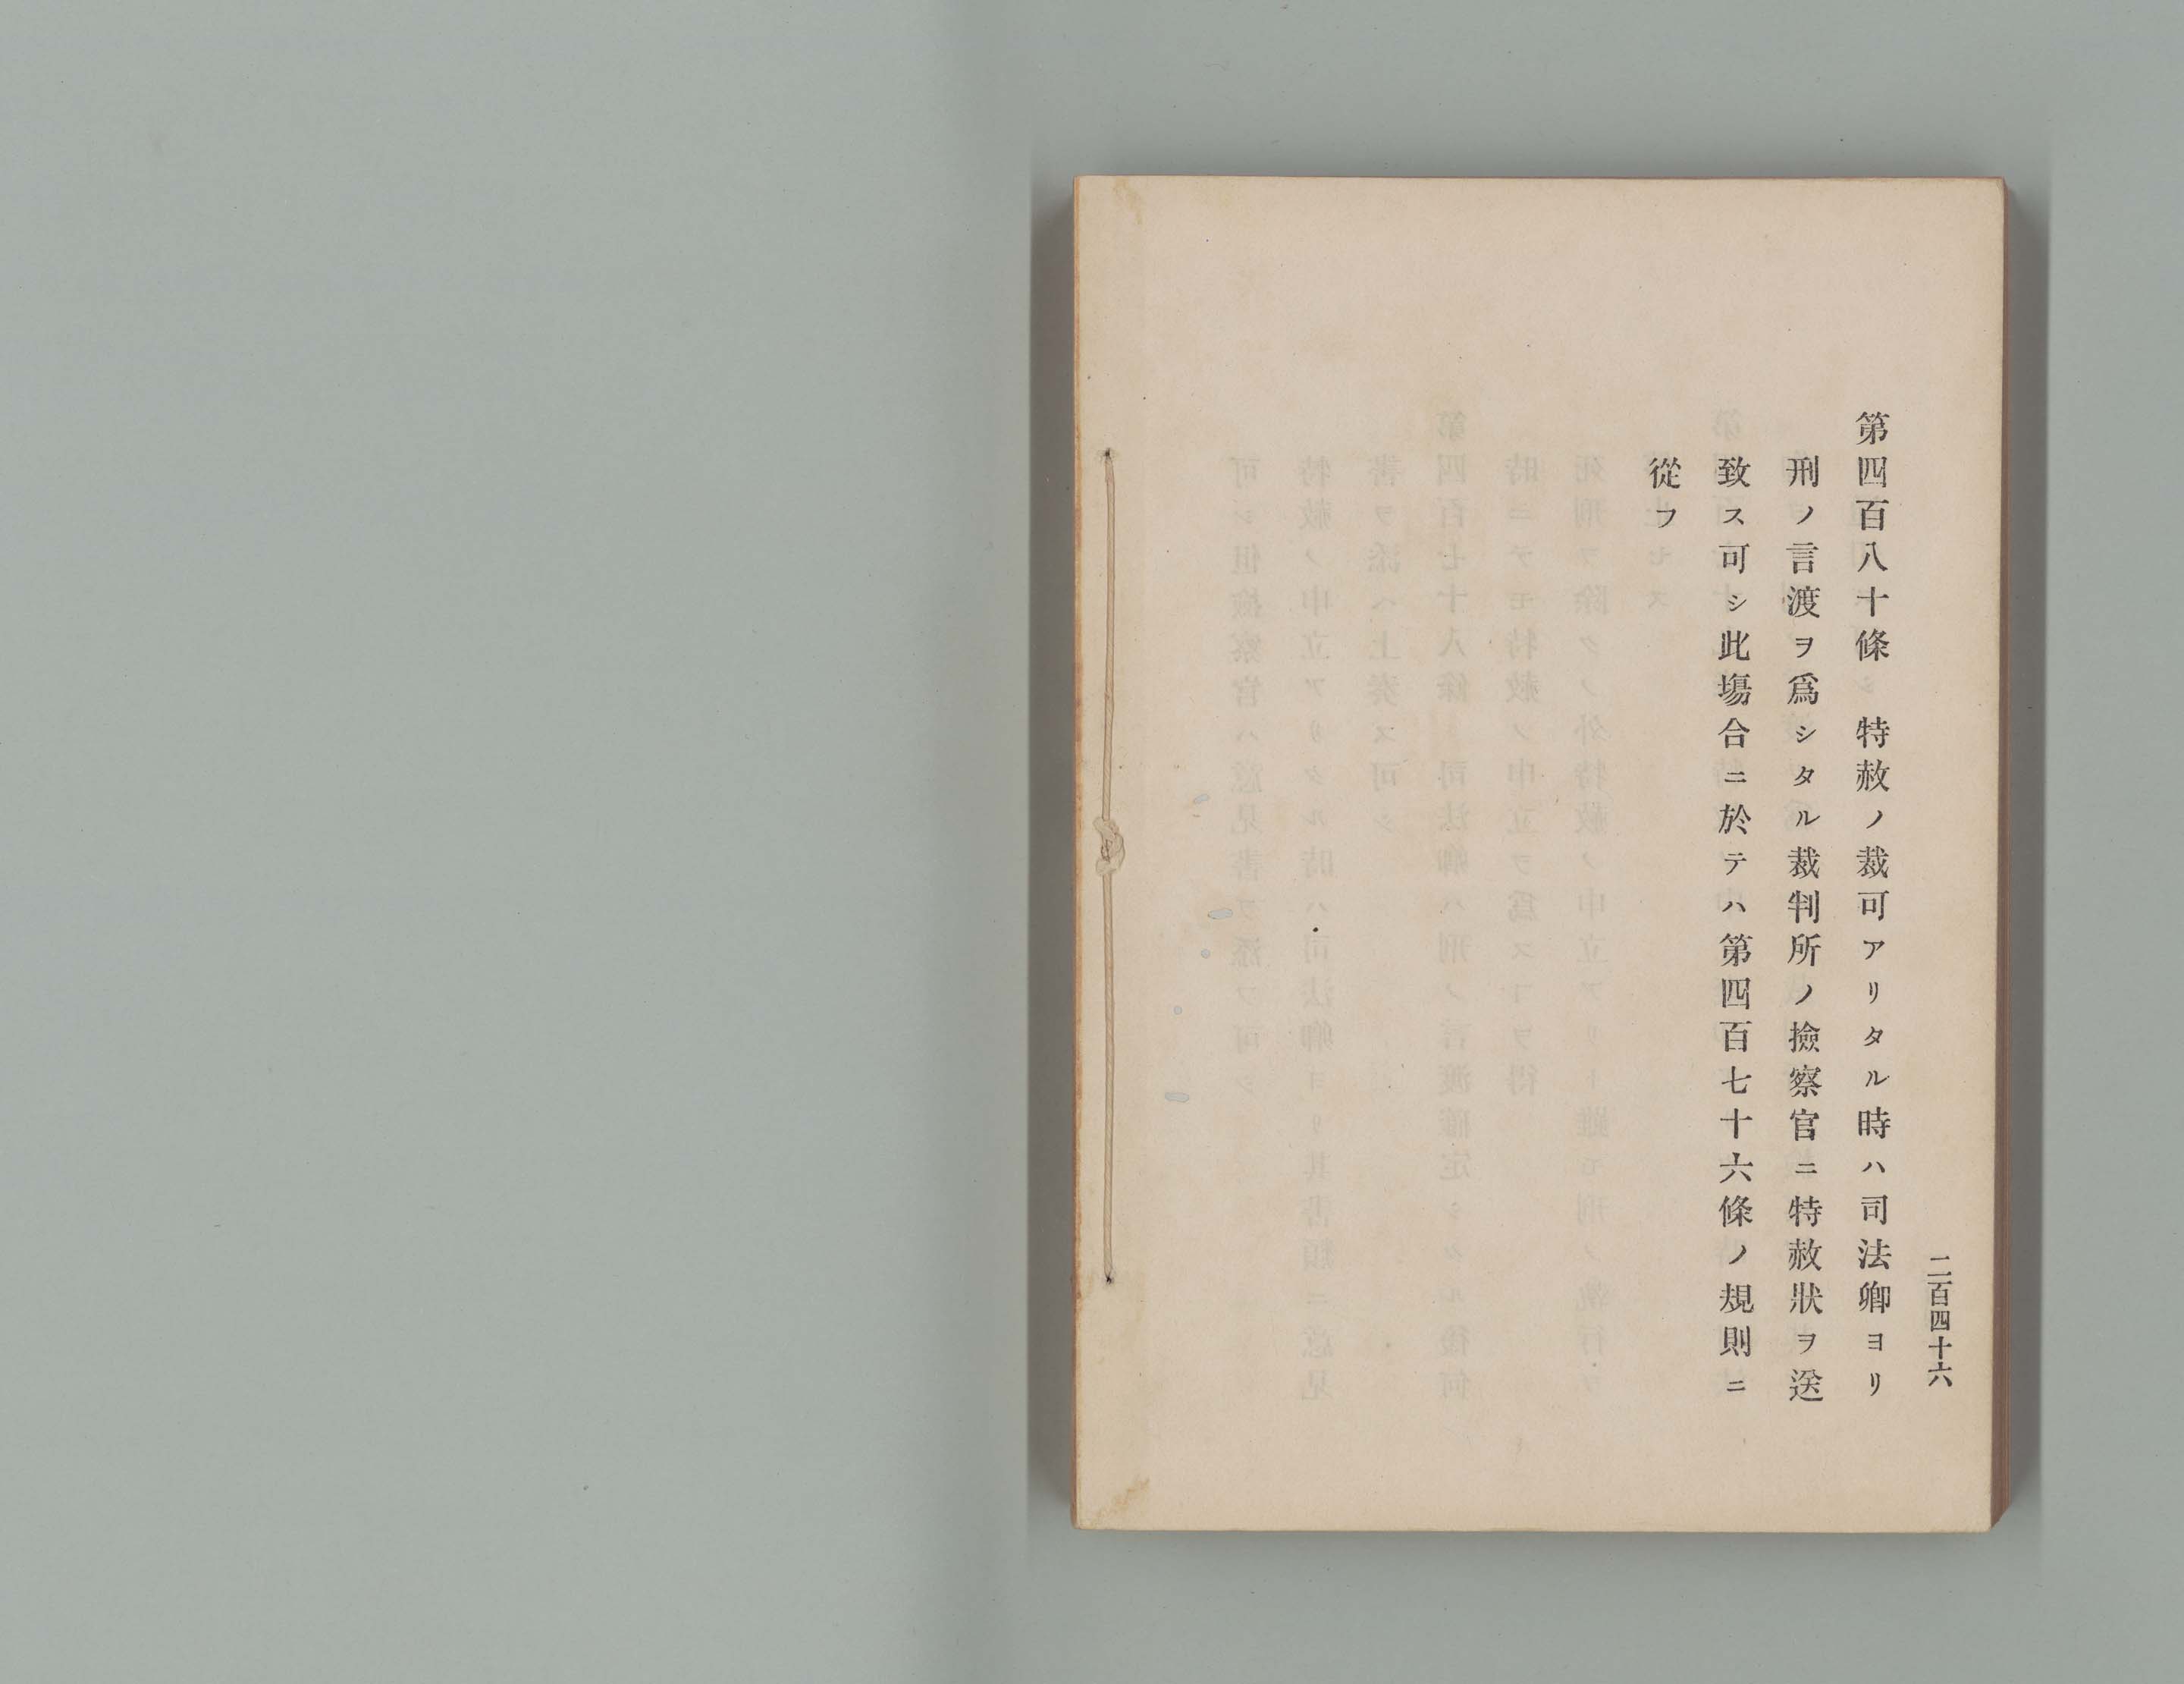 二百四十六
第四百八十條　特赦ノ裁可アリタル時ハ司法卿ヨリ
刑ノ言渡ヲ爲シタル裁判所ノ撿察官ニ特赦狀ヲ送
致ス可シ此塲合ニ於テハ第四百七十六條ノ規則ニ
從フ